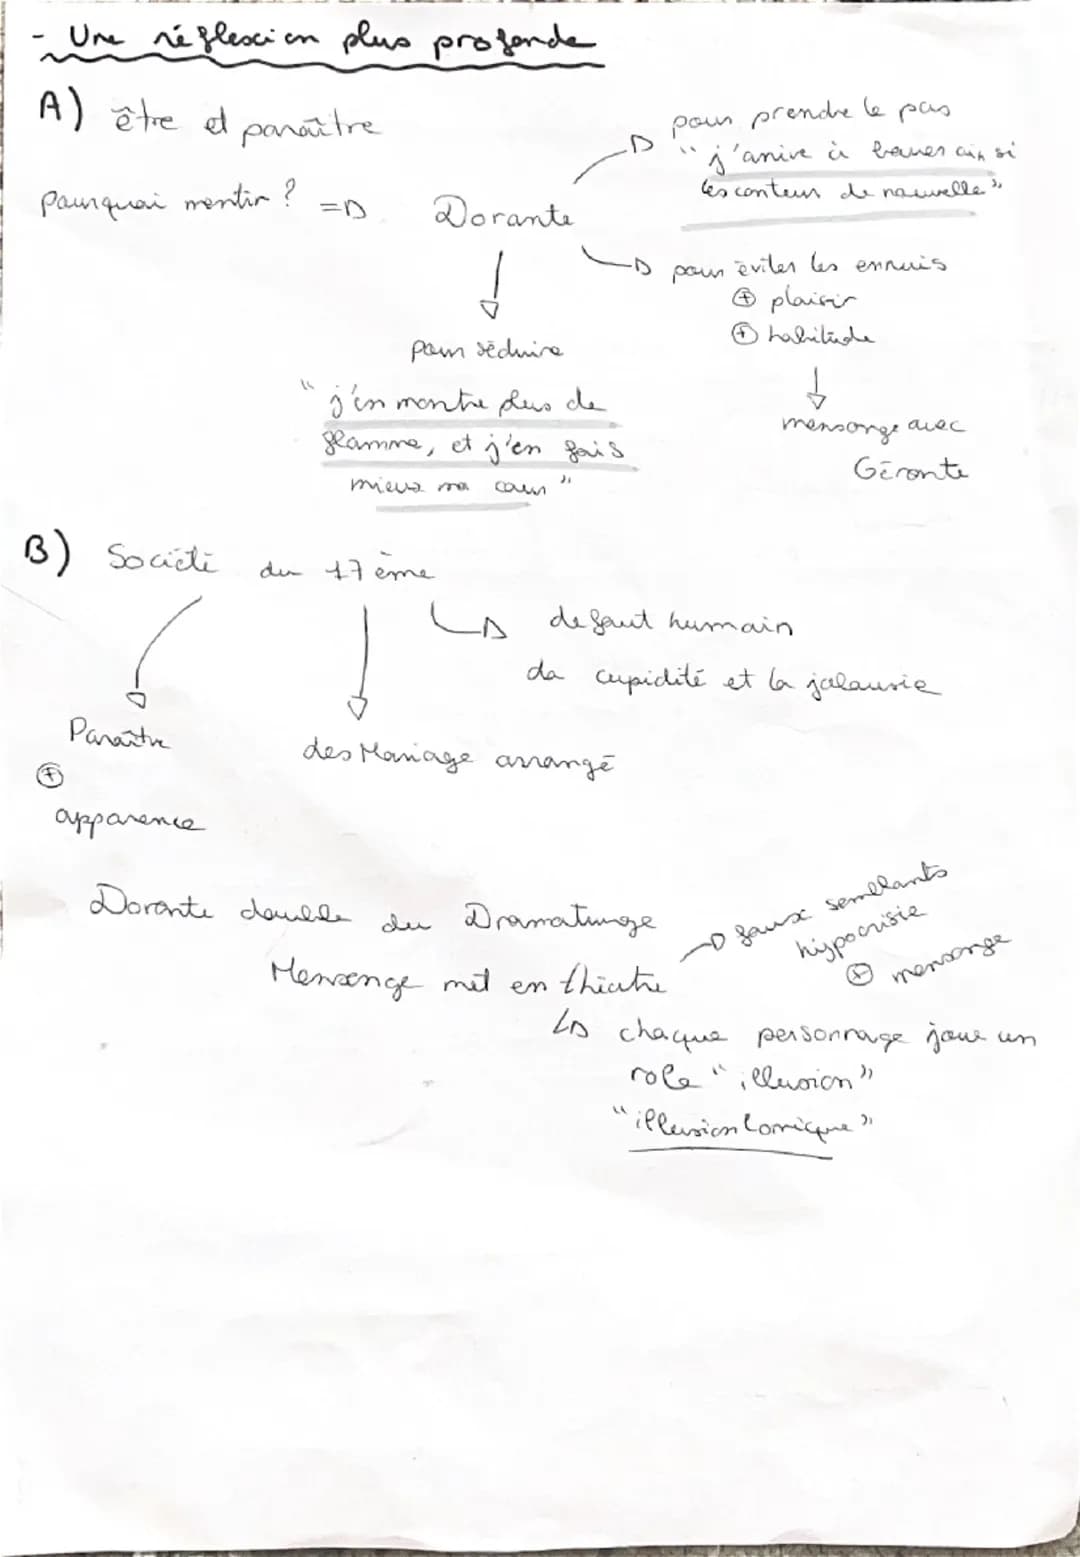 - Une réflexion plus profonde
A) être et paraître
pour prendre le pas
"j'arive à braver ainsi
les conteur de nouvelle"
pourquoi mentir ? => Dorante
pour éviter les ennuis
+ plaisir
+ habitude
pour séduire
"j'en montre plus de
flamme, et j'en fais
mieux ma cour"
mensonge avec
Géronte
B) Société du 17ème
defaut humain
la cupidité et la jalousie
Paraître
+
apparence
des Mariage arrangé
Dorante double du Dramaturge
faux semblants
hypocrisie
+ mensonge
Mensonge mit en théatre
chaque personnage joue un
role "illusion"
"illusion Comique"